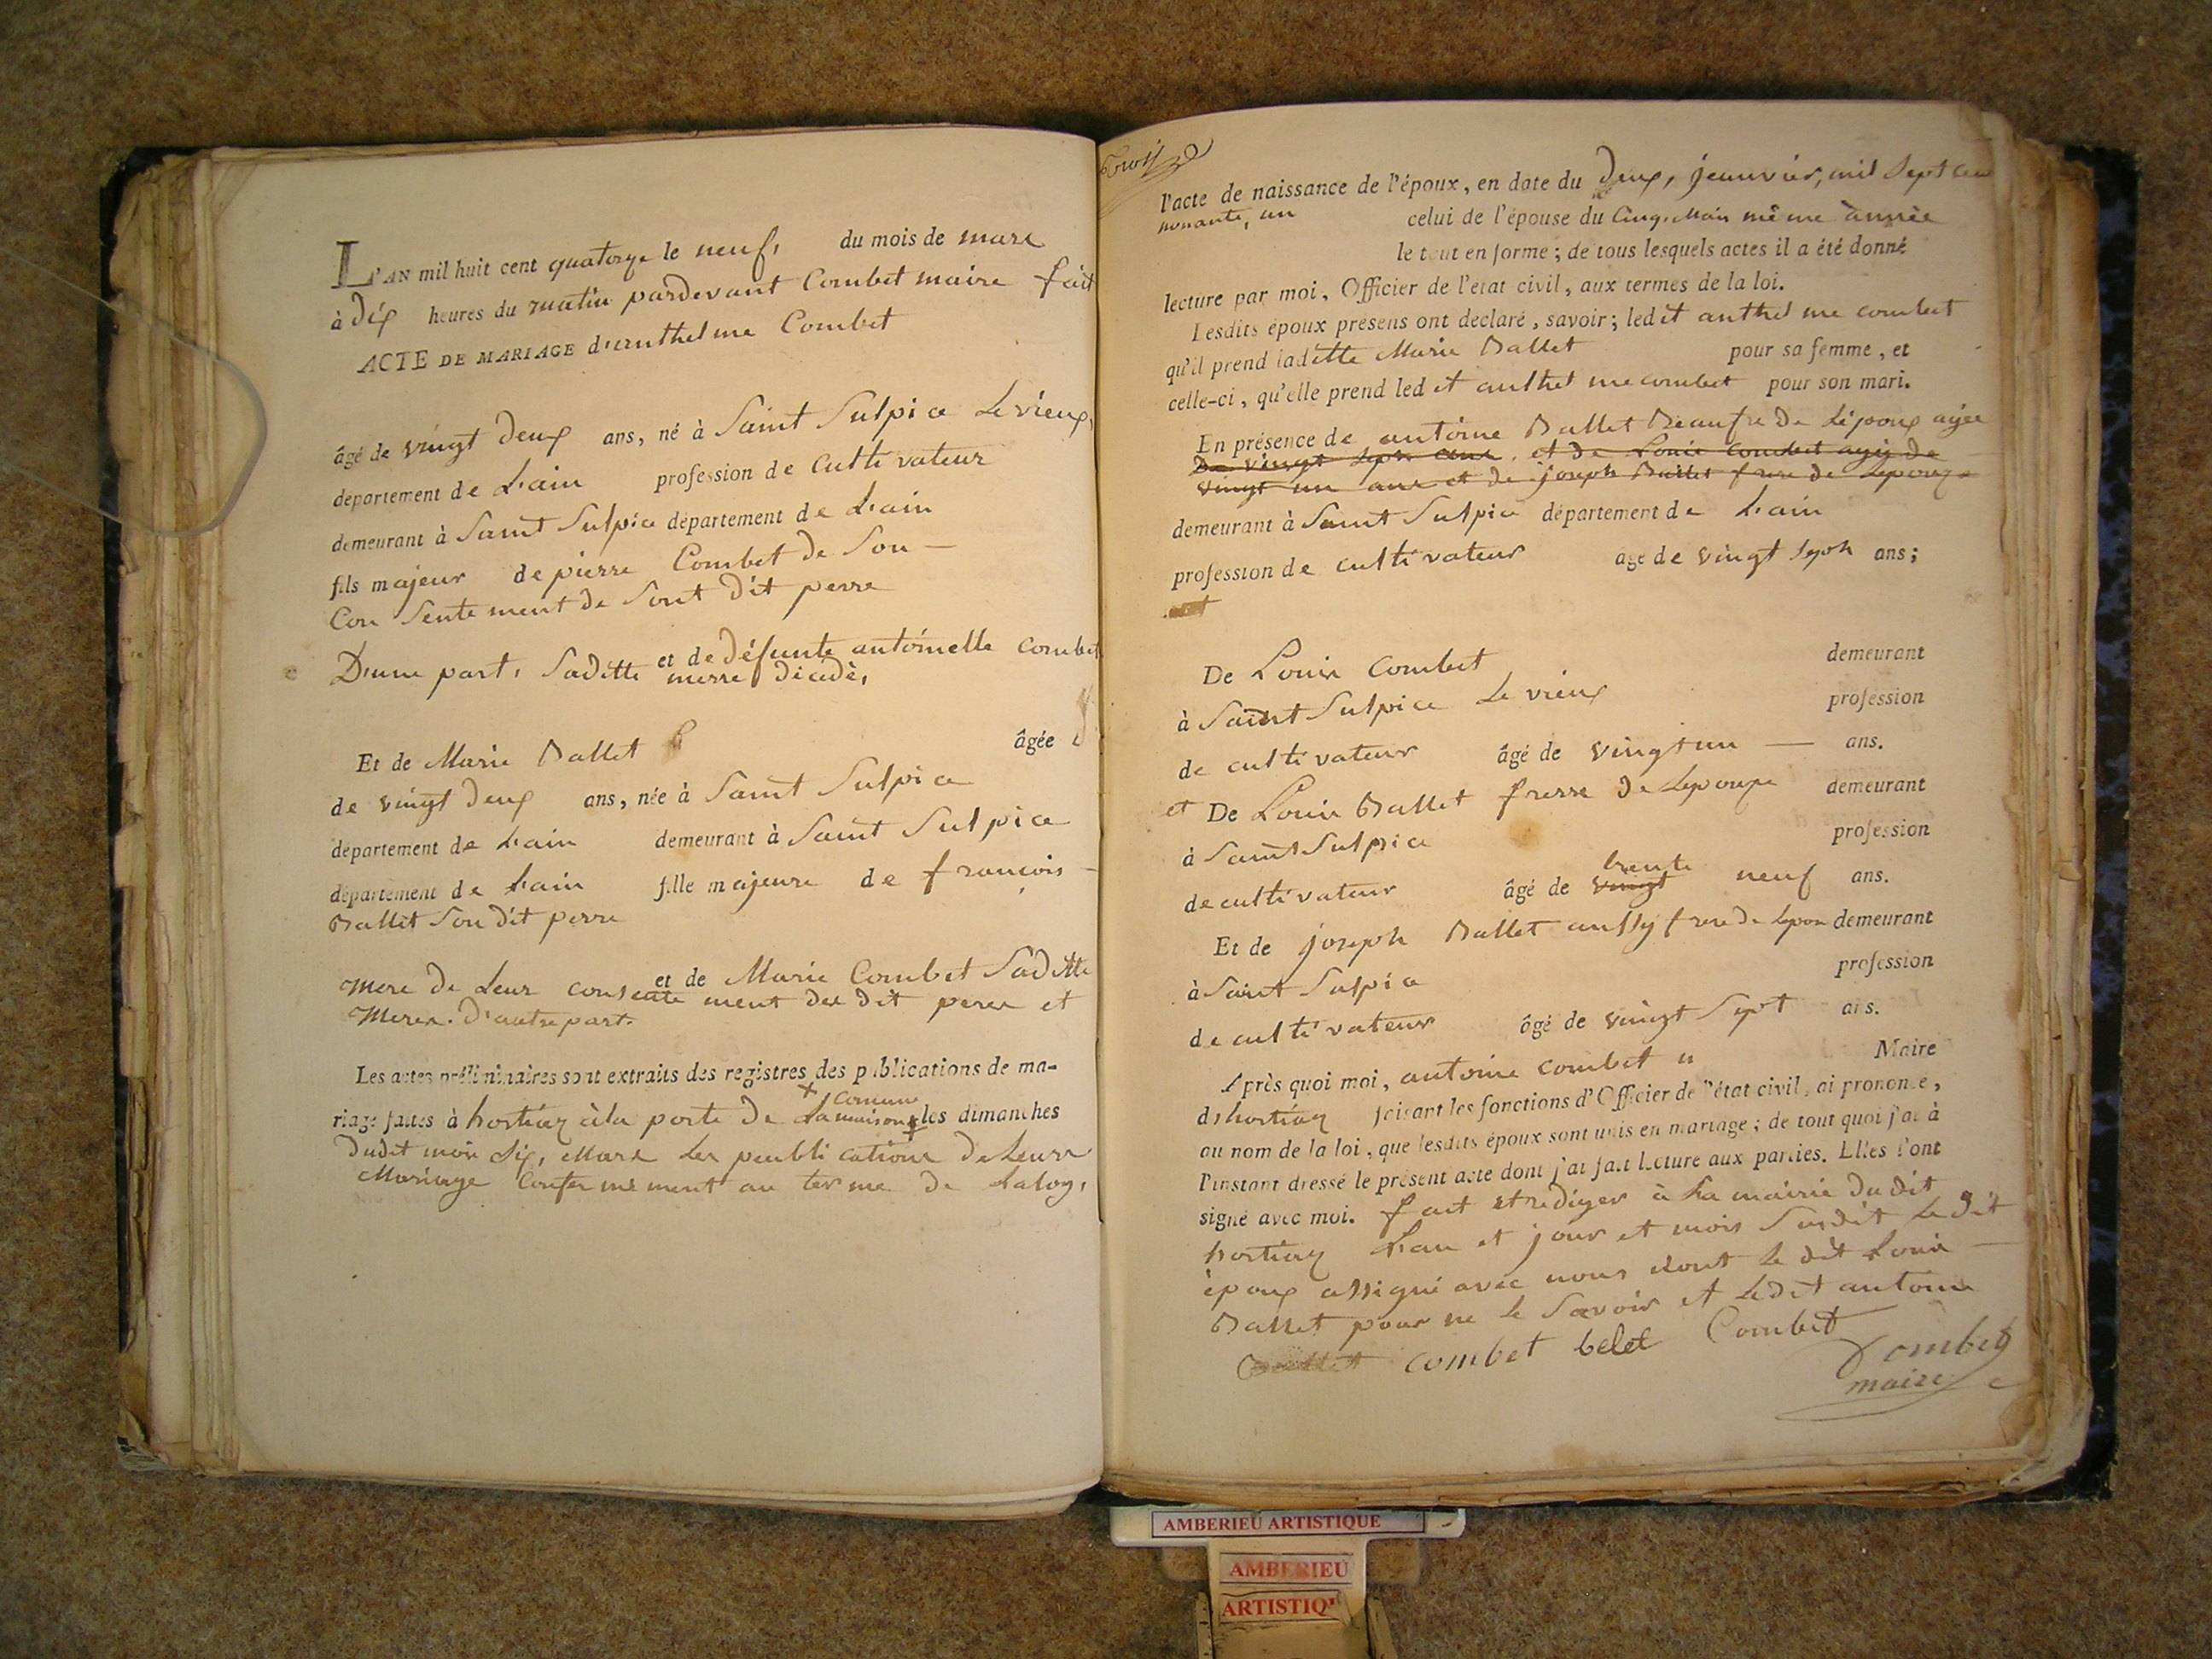 L'AN mil huit cent quatorze le neuf, du mois de mars
à dix heures du matin pardevant Combet maire fait
ACTE DE MARIAGE d'anthelme Combet
âgé de vingt deux ans, né à Saint Sulpice Le vieux,
département de L'ain profession de Cultivateur
demeurant à Saint Sulpice département de L'ain
fils majeur de pierre Combet de Son —
Con Sentement de Sont dit perre
et de défunte antoinette combet
D'une part, Saditte merre dècèdè,
Et de Marie Ballet âgée
de vingt deux ans, née à Saint Sulpice
département de L'ain demeurant à Saint Sulpice
département de L'ain fille majeure de françois —
Ballet Son dit perre
et de Marie Combet Saditte
Mere de Leur consentement des dit peres et
Meres. D'autre part.
Les actes préliminaires sont extraits des registres des publications de ma-
riage faites à hostiaz à la porte de la maison comune les dimanches
Dudit mois Six, Mars Les peublications de Leurs
Mariage Conformèment au terme de La loy,
l'acte de naissance de l'époux, en date du Deux, jeanvier, mil Sept cen
nonante, un celui de l'épouse du Cinq, Mars même annèe
le tout en forme; de tous lesquels actes il a été donné
lecture par moi, Officier de l'état civil, aux termes de la loi.
Lesdits époux présens ont déclaré, savoir; ledit anthelme combet
qu'il prend laditte Marie Ballet pour sa femme, et
celle-ci, qu'elle prend ledit anthelme combet pour son mari.
En présence de antoine Ballet Beaufre de Lépoux agée
De vingt Seph ans, et de Louis Combet agé de
vingt un ans et de joseph Ballet frere de Lepouze
demeurant à Saint Sulpice département de L'ain
profession de cultivateur âgé de vingt Seph ans;
De Louis Combet demeurant
à Saint Sulpice Le vieux profession
de cultivateur âgé de vingt un — ans.
et De Louis Ballet frerre de Lepouse demeurant
à Saint Sulpice profession
de cultivateur âgé de vingt trente neuf ans.
Et de joseph Ballet aussy frere de Lepou demeurant
à Saint Sulpice profession
de cultivateur âgé de vingt Sept ans.
Après quoi moi, antoine Combet Maire
d'hostiaz faisant les fonctions d'Officier de l'état civil, ai prononcé,
au nom de la loi, que lesdits époux sont unis en mariage; de tout quoi j'ai à
l'instant dressé le présent acte dont j'ai fait lecture aux parties. Elles l'ont
signé avec moi. fait et rediger à La mairie du dit
hostiaz L'an et jour et mois Susdit Le dit
èpoux assigné avec nous dont Le dit Louis —
Ballet pour ne Le Savoir et Ledit antoine
Ballet combet belet Combet
Combet
maire
AMBERIEU ARTISTIQUE
AMBERIEU
ARTISTIQ